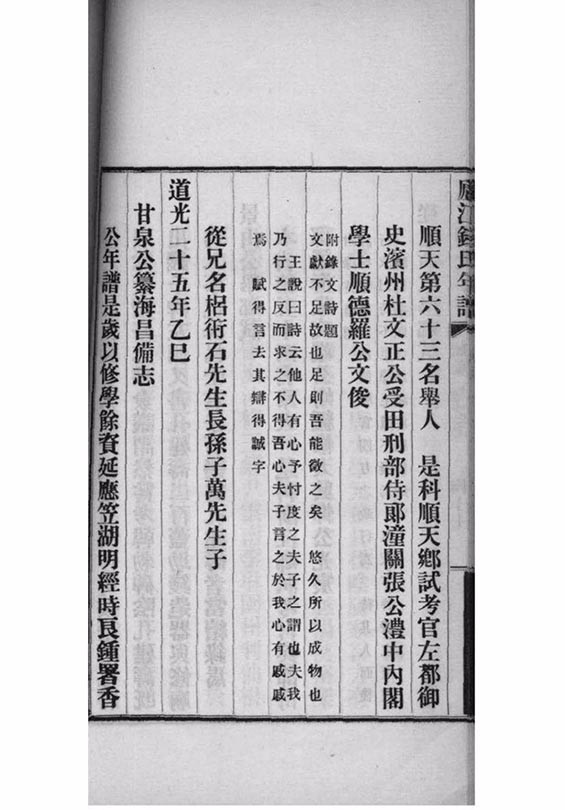 廬江錢氏年譜
順天第六十三名舉人　是科順天鄉試考官左都御
史濱州杜文正公受田刑部侍郎潼關張公澧中內閣
學士順德羅公文俊
附錄文詩題
文獻不足故也足則吾能徵之矣　悠久所以成物也
王說曰詩云他人有心予忖度之夫子之謂也夫我
乃行之反而求之不得吾心夫子言之於我心有戚戚
焉　賦得言去其辯得誠字
從兄名梠術石先生長孫子萬先生子
道光二十五年乙巳
甘泉公纂海昌備志
公年譜是歲以修學餘資延應笠湖明經時艮鍾署香